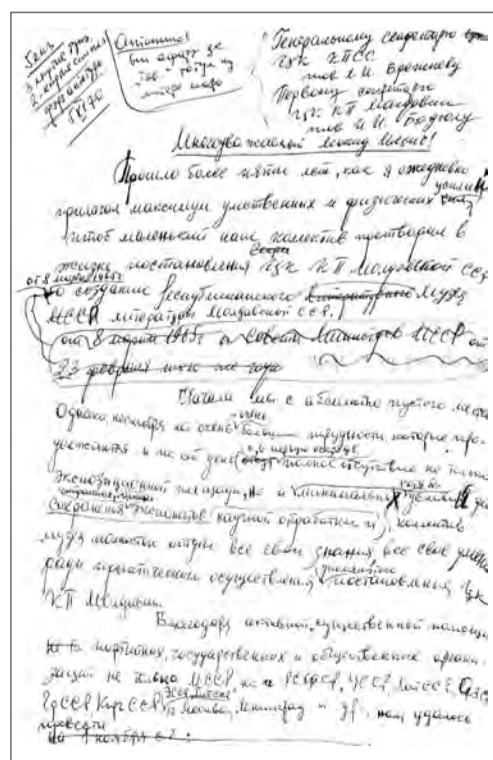 5 экз
3 другие
5 IX 70
Антонина!
Генеральному секретарю
ЦК КПСС
тов Л И. Брежневу
Первому секретарю
ЦК КП Молдавии
тов И И. Бодюлу
Многоуважаемый Леонид Ильич!
Прошло более пяти лет, как я ежедневно
прилагаю максимум умственных и физических усилий
чтоб маленький наш коллектив претворил в
жизнь постановления ЦК КП Молдавской ССР
от 8 марта 1965 г.
о создании Республиканского Музея
МССР литературы Молдавской ССР.
от 8 марта 1965 г и Совета Министров МССР от
23 февраля того же года
Начали мы с абсолютно пустого места
Однако, несмотря на очень большие трудности, которые про-
должаются и по сей день полное отсутствие не только
экспозиционной площади, но и минимальных условий для
сохранения экспонатов научной обработки и, коллектив
музея полностью отдает все свои знания все свое умение
ради практического осуществления постановления ЦК
КП Молдавии.
Благодаря активной, существенной помощи
партийных, государственных и общественных органи-
заций не только МССР но и РСФСР, УССР, ЛатССР,
ГрССР КиргССР гг Москва, Ленинград и др. нам удалось
провести
на 1 ноября с г: